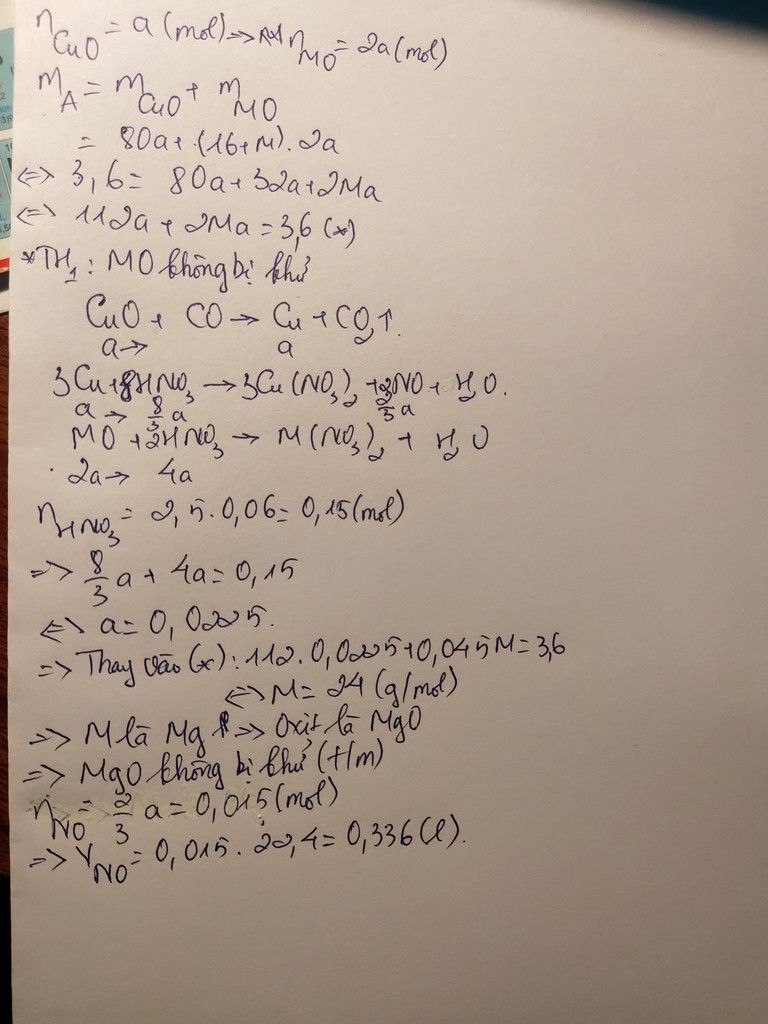 nCuO = a (mol) => nMO = 2a (mol)
mA = mCuO + mMO
= 80a + (16+M).2a
<=> 3,6 = 80a + 32a + 2Ma
<=> 112a + 2Ma = 3,6 (*)
*TH1: MO không bị khử
CuO + CO → Cu + CO2↑.
a→ a
3Cu + 8HNO3 → 3Cu(NO3)2 + 2NO + H2O.
a → 8/3 a 2/3 a
MO + 2HNO3 → M(NO3)2 + H2O
2a→ 4a
nHNO3 = 2,5.0,06 = 0,15 (mol)
=> 8/3 a + 4a = 0,15
<=> a = 0,0225.
=> Thay vào (*): 112.0,0225 + 0,045M = 3,6
<=> M = 24 (g/mol)
=> M là Mg => Oxit là MgO
=> MgO không bị khử (t/m)
nNO = 2/3 a = 0,015 (mol)
=> VNO = 0,015.22,4 = 0,336 (l).